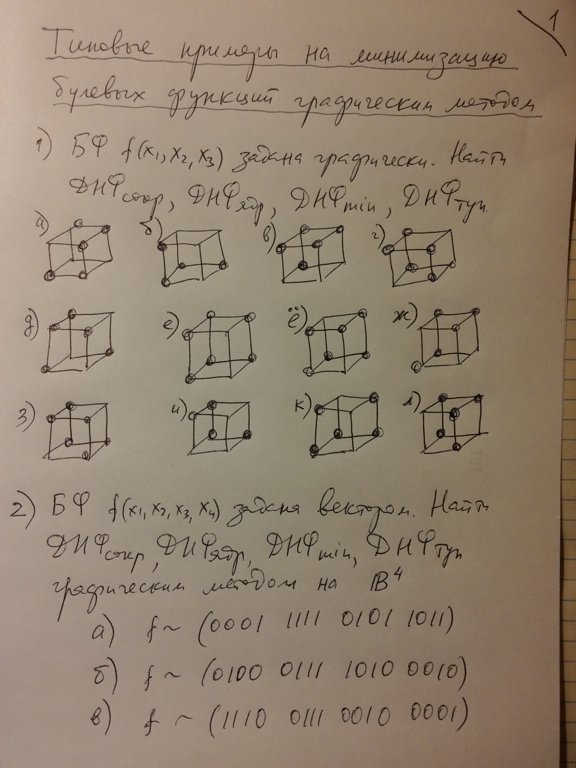 1
Типовые примеры на минимизацию
булевых функций графическим методом
1) БФ f(x₁, x₂, x₃) задана графически. Найти
ДНФсокр, ДНФядр, ДНФmin, ДНФтуп.
а) б) в) г)
д) е) ё) ж)
з) и) к) л)
2) БФ f(x₁, x₂, x₃, x₄) задана вектором. Найти
ДНФсокр, ДНФядр, ДНФmin, ДНФтуп
графическим методом на B⁴
а) f ~ (0001 1111 0101 1011)
б) f ~ (0100 0111 1010 0010)
в) f ~ (1110 0111 0010 0001)